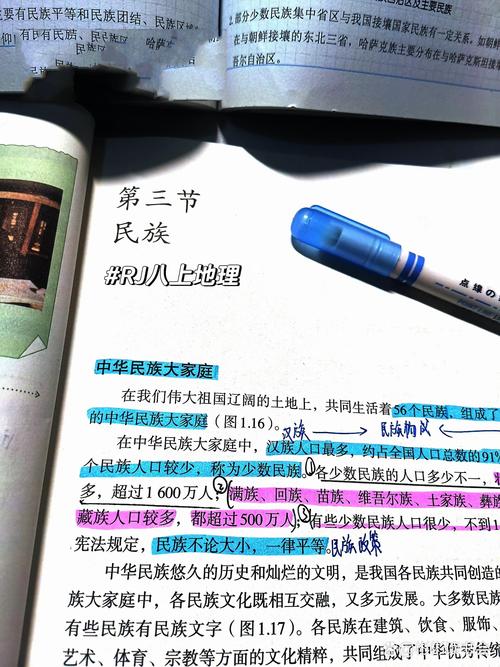 要有民族平等和民族团结、民族区
仰
有民族、
哈萨
区及主要民族
2. 部分少数民族集中省区与我国接壤国家民族有一定关系。如朝鲜
在与朝鲜接壤的东北三省，哈萨克族主要分布在与哈萨克斯坦接壤
吾尔自治区。
第三节
民族
#RJ八上地理
点缘の
中华民族大家庭
在我们伟大祖国辽阔的土地上，共同生活着56个民族，组成了
的中华民族大家庭（图1.16）。
汉族
民族
在中华民族大家庭中，汉族人口最多，约占全国人口总数的91%
个民族人口较少，称为少数民族。①各少数民族的人口多少不一，
多，超过1 600万人；②满族、回族、苗族、维吾尔族、土家族、彝族
藏族人口较多，都超过500万人；③有些少数民族人口很少，不到1
宪法规定，民族不论大小，一律平等。民族政策
中华民族悠久的历史和灿烂的文明，是我国各民族共同创造的
族大家庭中，各民族文化既相互交融，又多元发展。大多数民族
有些民族有民族文字（图1.17）。各民族在建筑、饮食、服饰、
艺术、体育、宗教等方面的文化精粹，共同组成了中华优秀传统